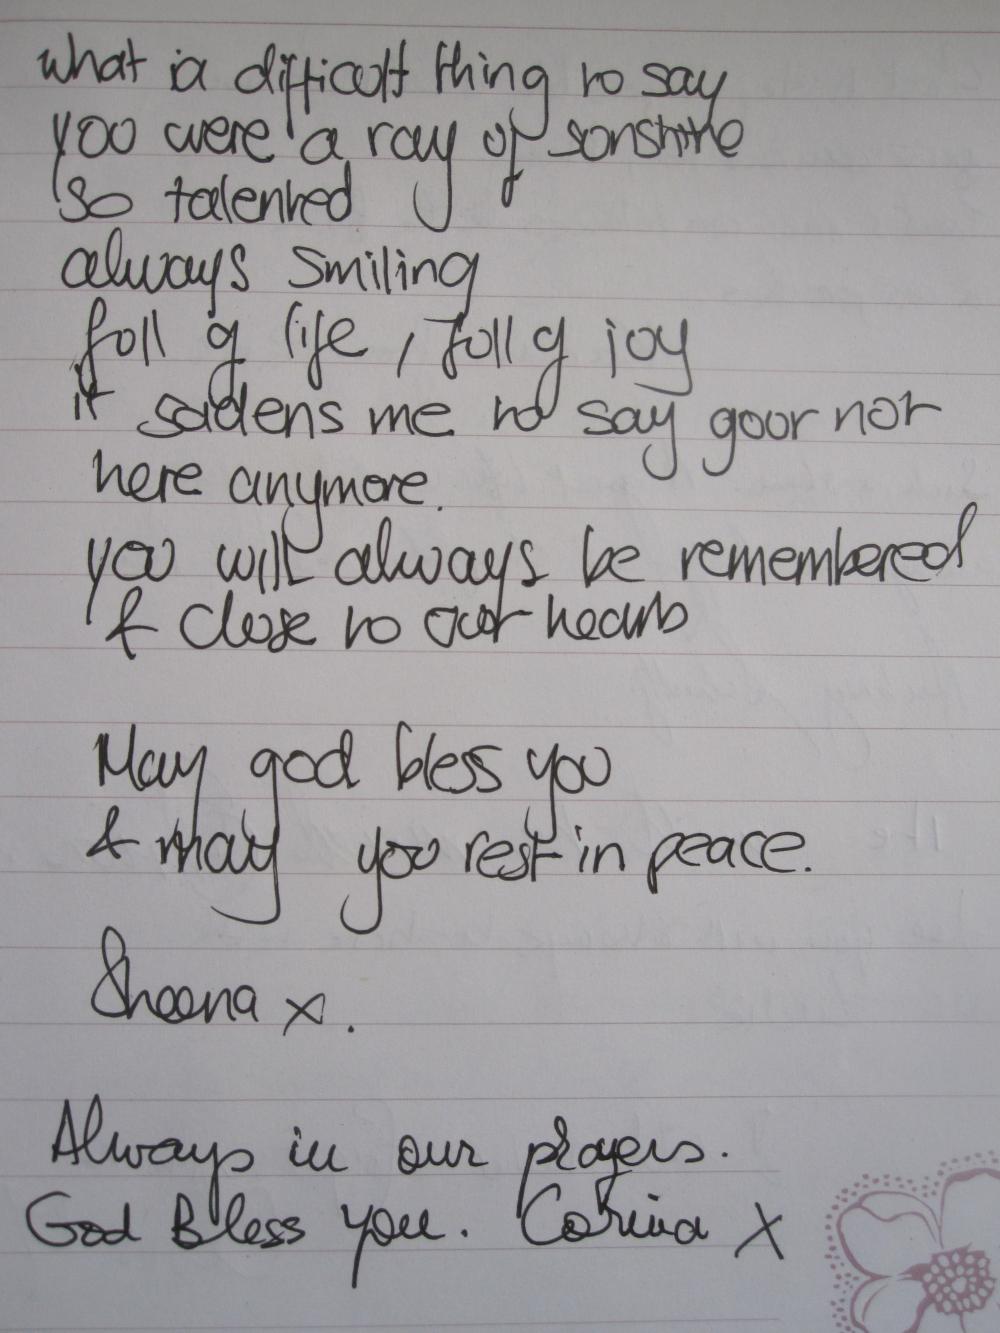 what a difficult thing to say
you were a ray of sunshine
so talented
always smiling
full of life, full of joy
it sadens me to say your not
here anymore.
you will always be remembered
& close to our hearts
May god bless you
& may you rest in peace.
Sheena x.
Always in our prayers.
God Bless you. Corina X